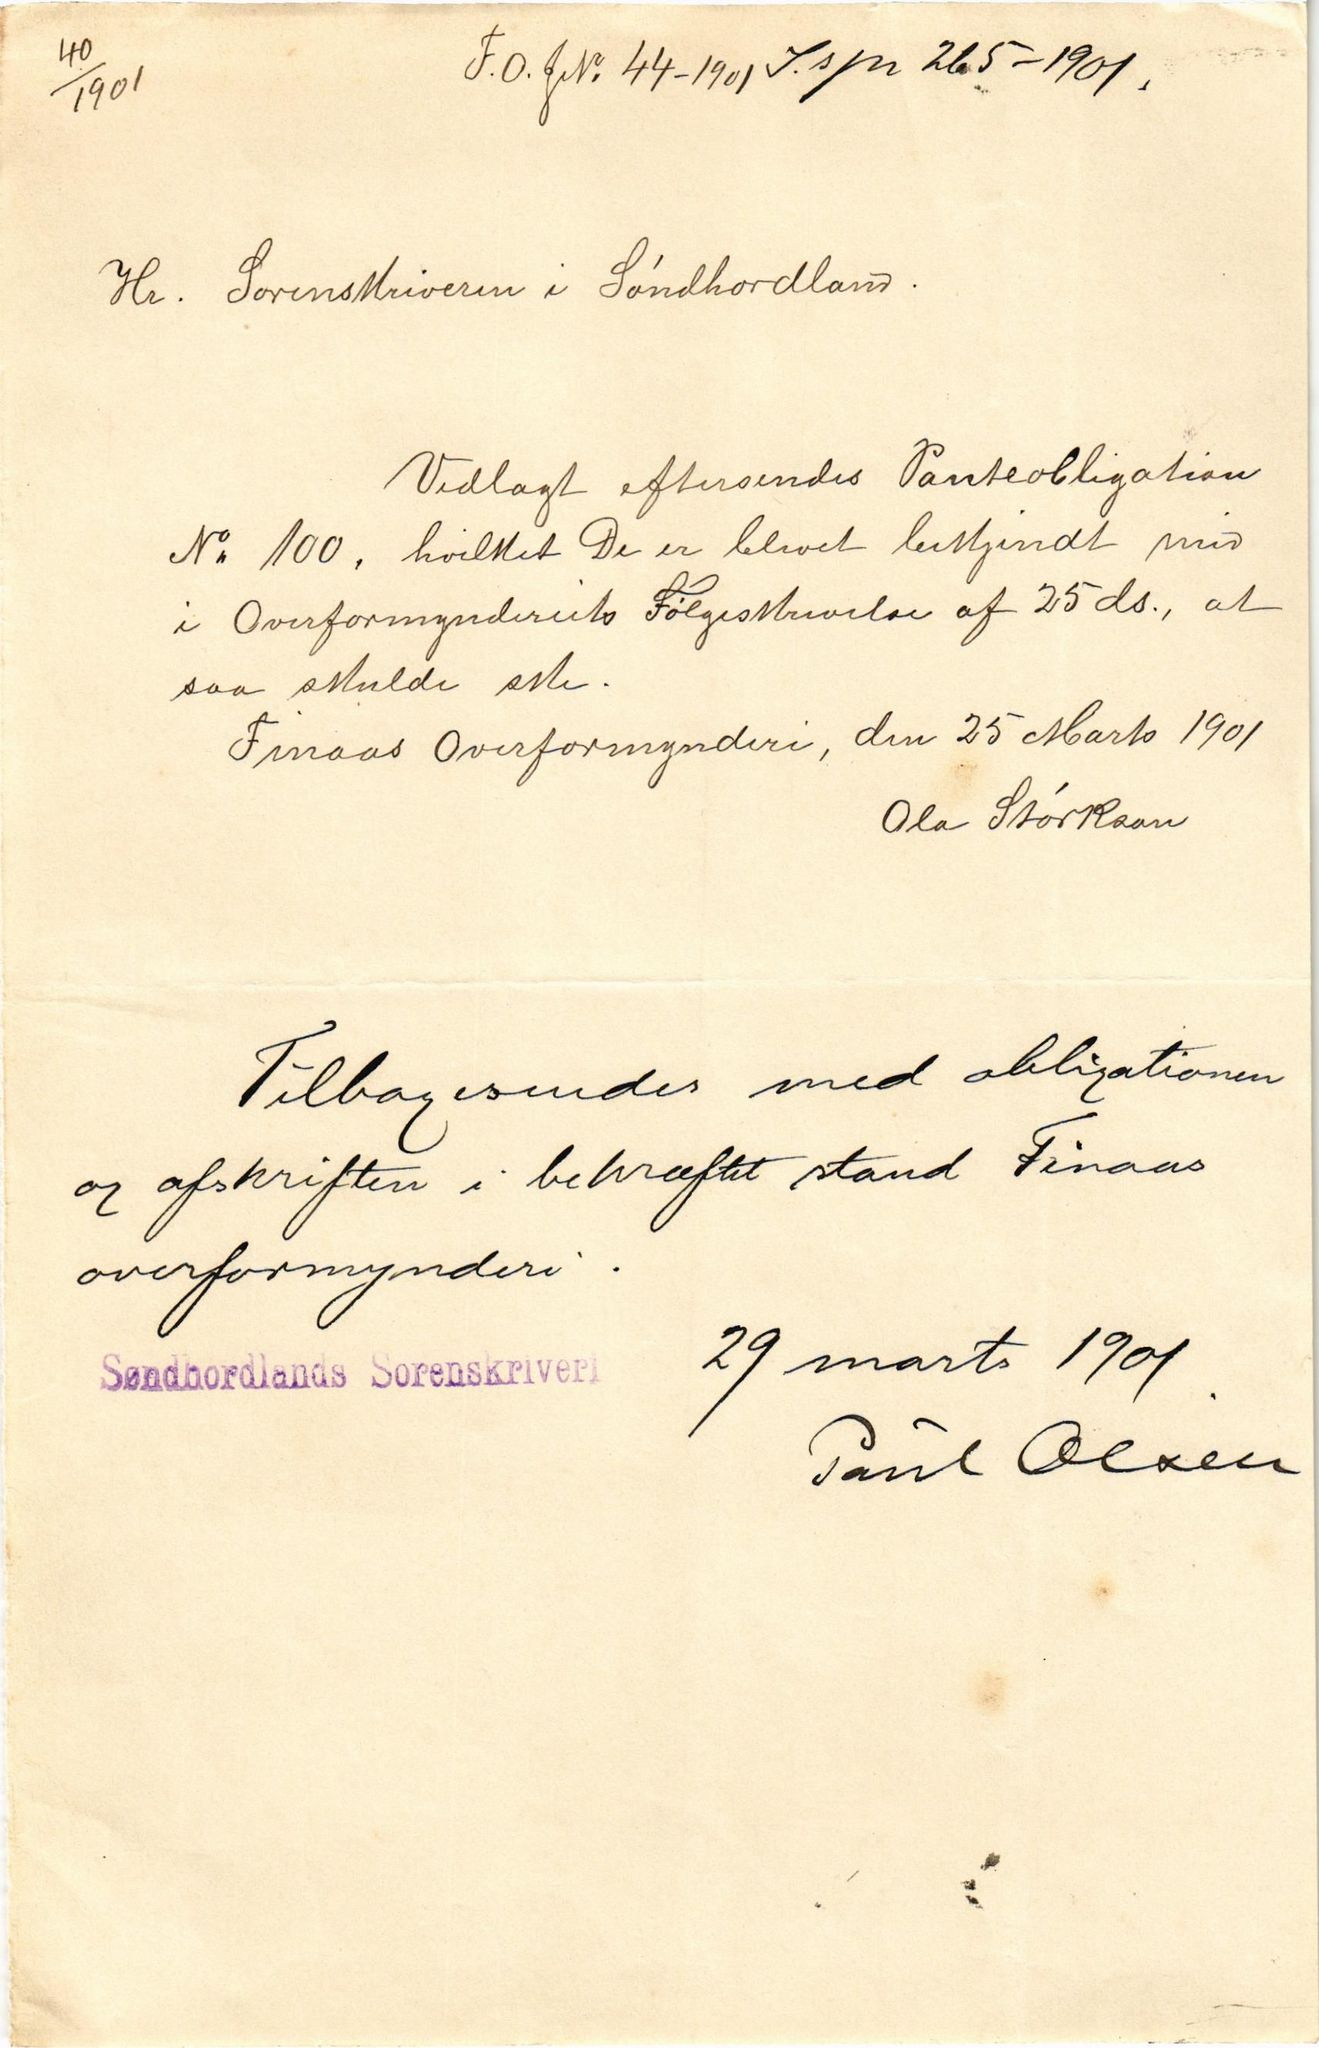 40
1901
F.O. J№ 44-1901 S. s jn 265-1901.
Hr. Sorenskriveren i Söndhordland.
Vedlagt eftersendes Panteobligation
№ 100, hvilket De er blevet bekjendt med
i Overformynderiets Følgeskrivelse af 25 ds., at
saa skulde ske.
Finaas Overformynderi, den 25 Marts 1901
Ola Störkson
Tilbagesendes med obligationen
og afskriften i bekræftet stand Finaas
overformynderi.
Søndhordlands Sorenskriveri
29 marts 1901.
Paul Olsen